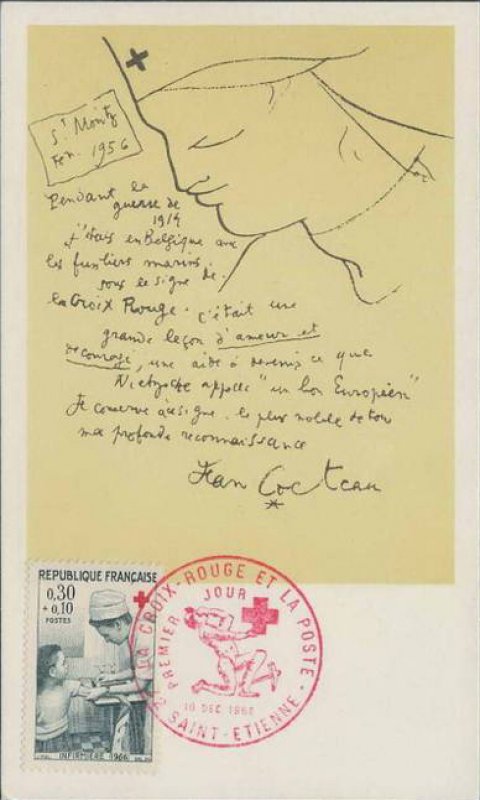 St Moritz
Fev. 1956
Pendant la
guerre de
1914
j'étais en Belgique avec
les fusiliers marins
sous le signe de
la Croix Rouge. c'était une
grande leçon d'amour et
de courage, une aide à devenir ce que
Nietzsche appelle "un bon Européen"
Je conserve à ce signe le plus noble de tous
ma profonde reconnaissance
Jean Cocteau
REPUBLIQUE FRANÇAISE
0,30
+0,10
POSTES
INFIRMIERE 1966
LA CROIX-ROUGE ET LA POSTE
PREMIER JOUR
10 DEC 1966
42 SAINT-ETIENNE